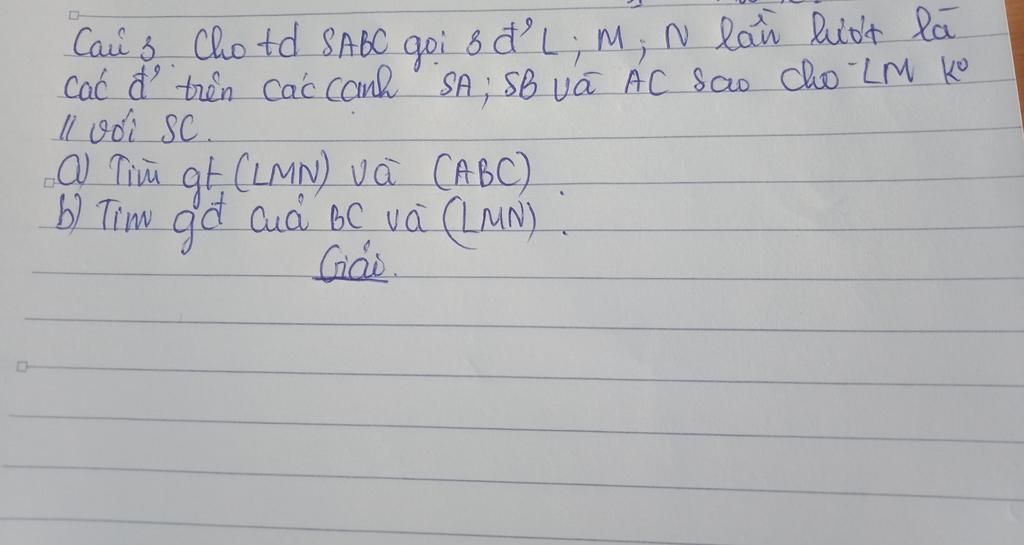 Câu 3. Cho tđ SABC gọi 3 đ' L ; M ; N lần lượt là
các đ' trên các cạnh SA ; SB và AC sao cho LM ko
// với SC.
a) Tìm gt (LMN) và (ABC).
b) Tìm gđ của BC và (LMN).
Giải.